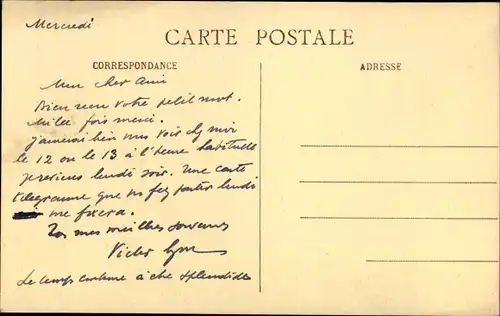 Mercredi
CARTE POSTALE
CORRESPONDANCE
ADRESSE
Mon cher Ami
Bien reçu votre petit mot.
Mille fois merci.
J'aimerais bien vous voir chez moi
le 12 ou le 13 à l'heure habituelle
Je reviens lundi soir. Une carte
télégramme que vous
me fixera.
mes meilleurs souvenirs
Victor
Le temps continue à être splendide